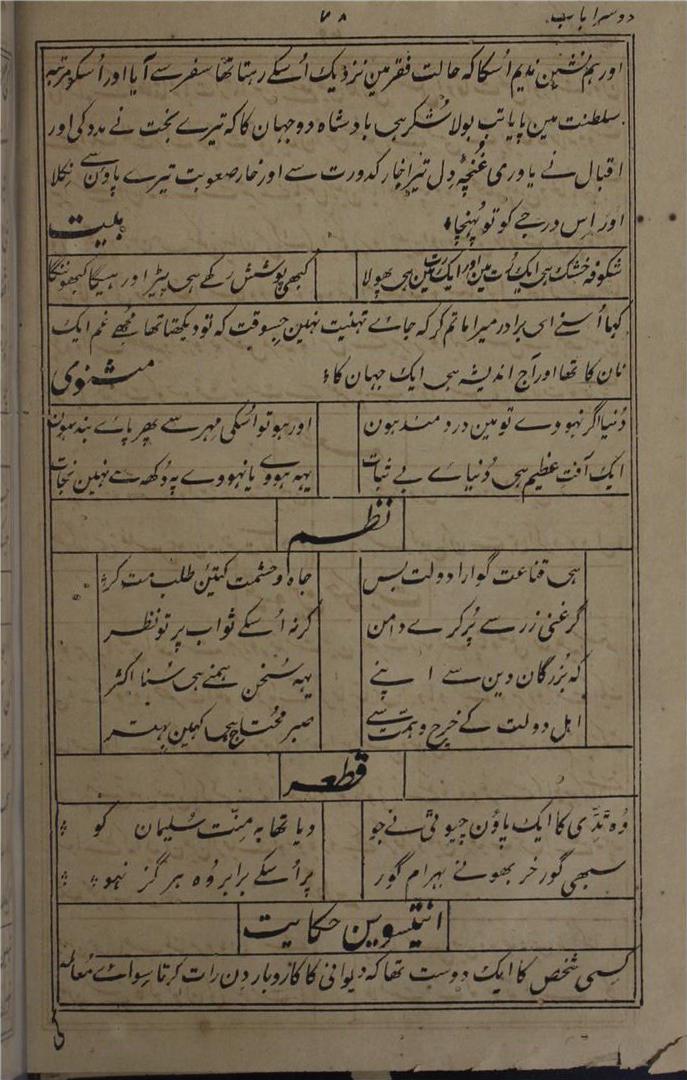 دوسرا باب ۷۸
اور ہم نشین ندیم اُسکا کہ حالت فقر مین نزدیک اُسکے رہتا تھا سفر سے آیا اور اُسکو مرتبہ
سلطنت مین پایا تب بولا شکر ہی بادشاہ دو جہان کا کہ تیرے بخت نے مدد کی اور
اقبال نے یاوری غنچۂ دل تیرا خار کدورت سے اور خار صعوبت تیرے پاؤن سے نکلا
اور اس درجے کو تو پہنچا
بیت
شگوفہ خشک ہی ایک رُت مین اور ایک رُت مین ہی پھولا کبھی پوشش رکھے ہی پیڑ اور ہیگا کبھو ننگا
کہا اُسنے ای برادر میرا ماتم کر کہ جاے تہنیت نہین جسوقت کہ تو دیکھتا تھا مجھے غم ایک
نان کا تھا اور آج اندیشہ ہی ایک جہان کا
مثنوی
دُنیا اگر نہووے تو مین دردمند ہون اور ہو تو اُسکی مہر سے پھر پاے بند ہون
ایک آفتِ عظیم ہی دُنیاے بے ثبات یہہ ہووے یا نہووے پہ دُکھ سے نہین نجات
نظم
ہی قناعت گوارا دولت بس جاہ و حشمت کتین طلب مت کر
گر غنی زر سے پُر کرے دامن کر نہ اُسکے ثواب پر تو نظر
کہ بُزرگان دین سے اپنے یہہ سُخن ہمنے ہی سُنا اکثر
اہل دولت کے خرچ و ہمت سے صبر محتاج کا کہین بہتر
قطعہ
وُہ ٹڈّی کا ایک پاؤن چیونٹی نے جو دیا تھا بہ منّت سُلیمان کو
سبھی گور خر بھونے بہرام گور پر اُسکے برابر وُہ ہرگز نہو
انتیسوین حکایت
کسی شخص کا ایک دوست تھا کہ دیوانی کا کاروبار دن رات کرتا سواے معاملہ
کی